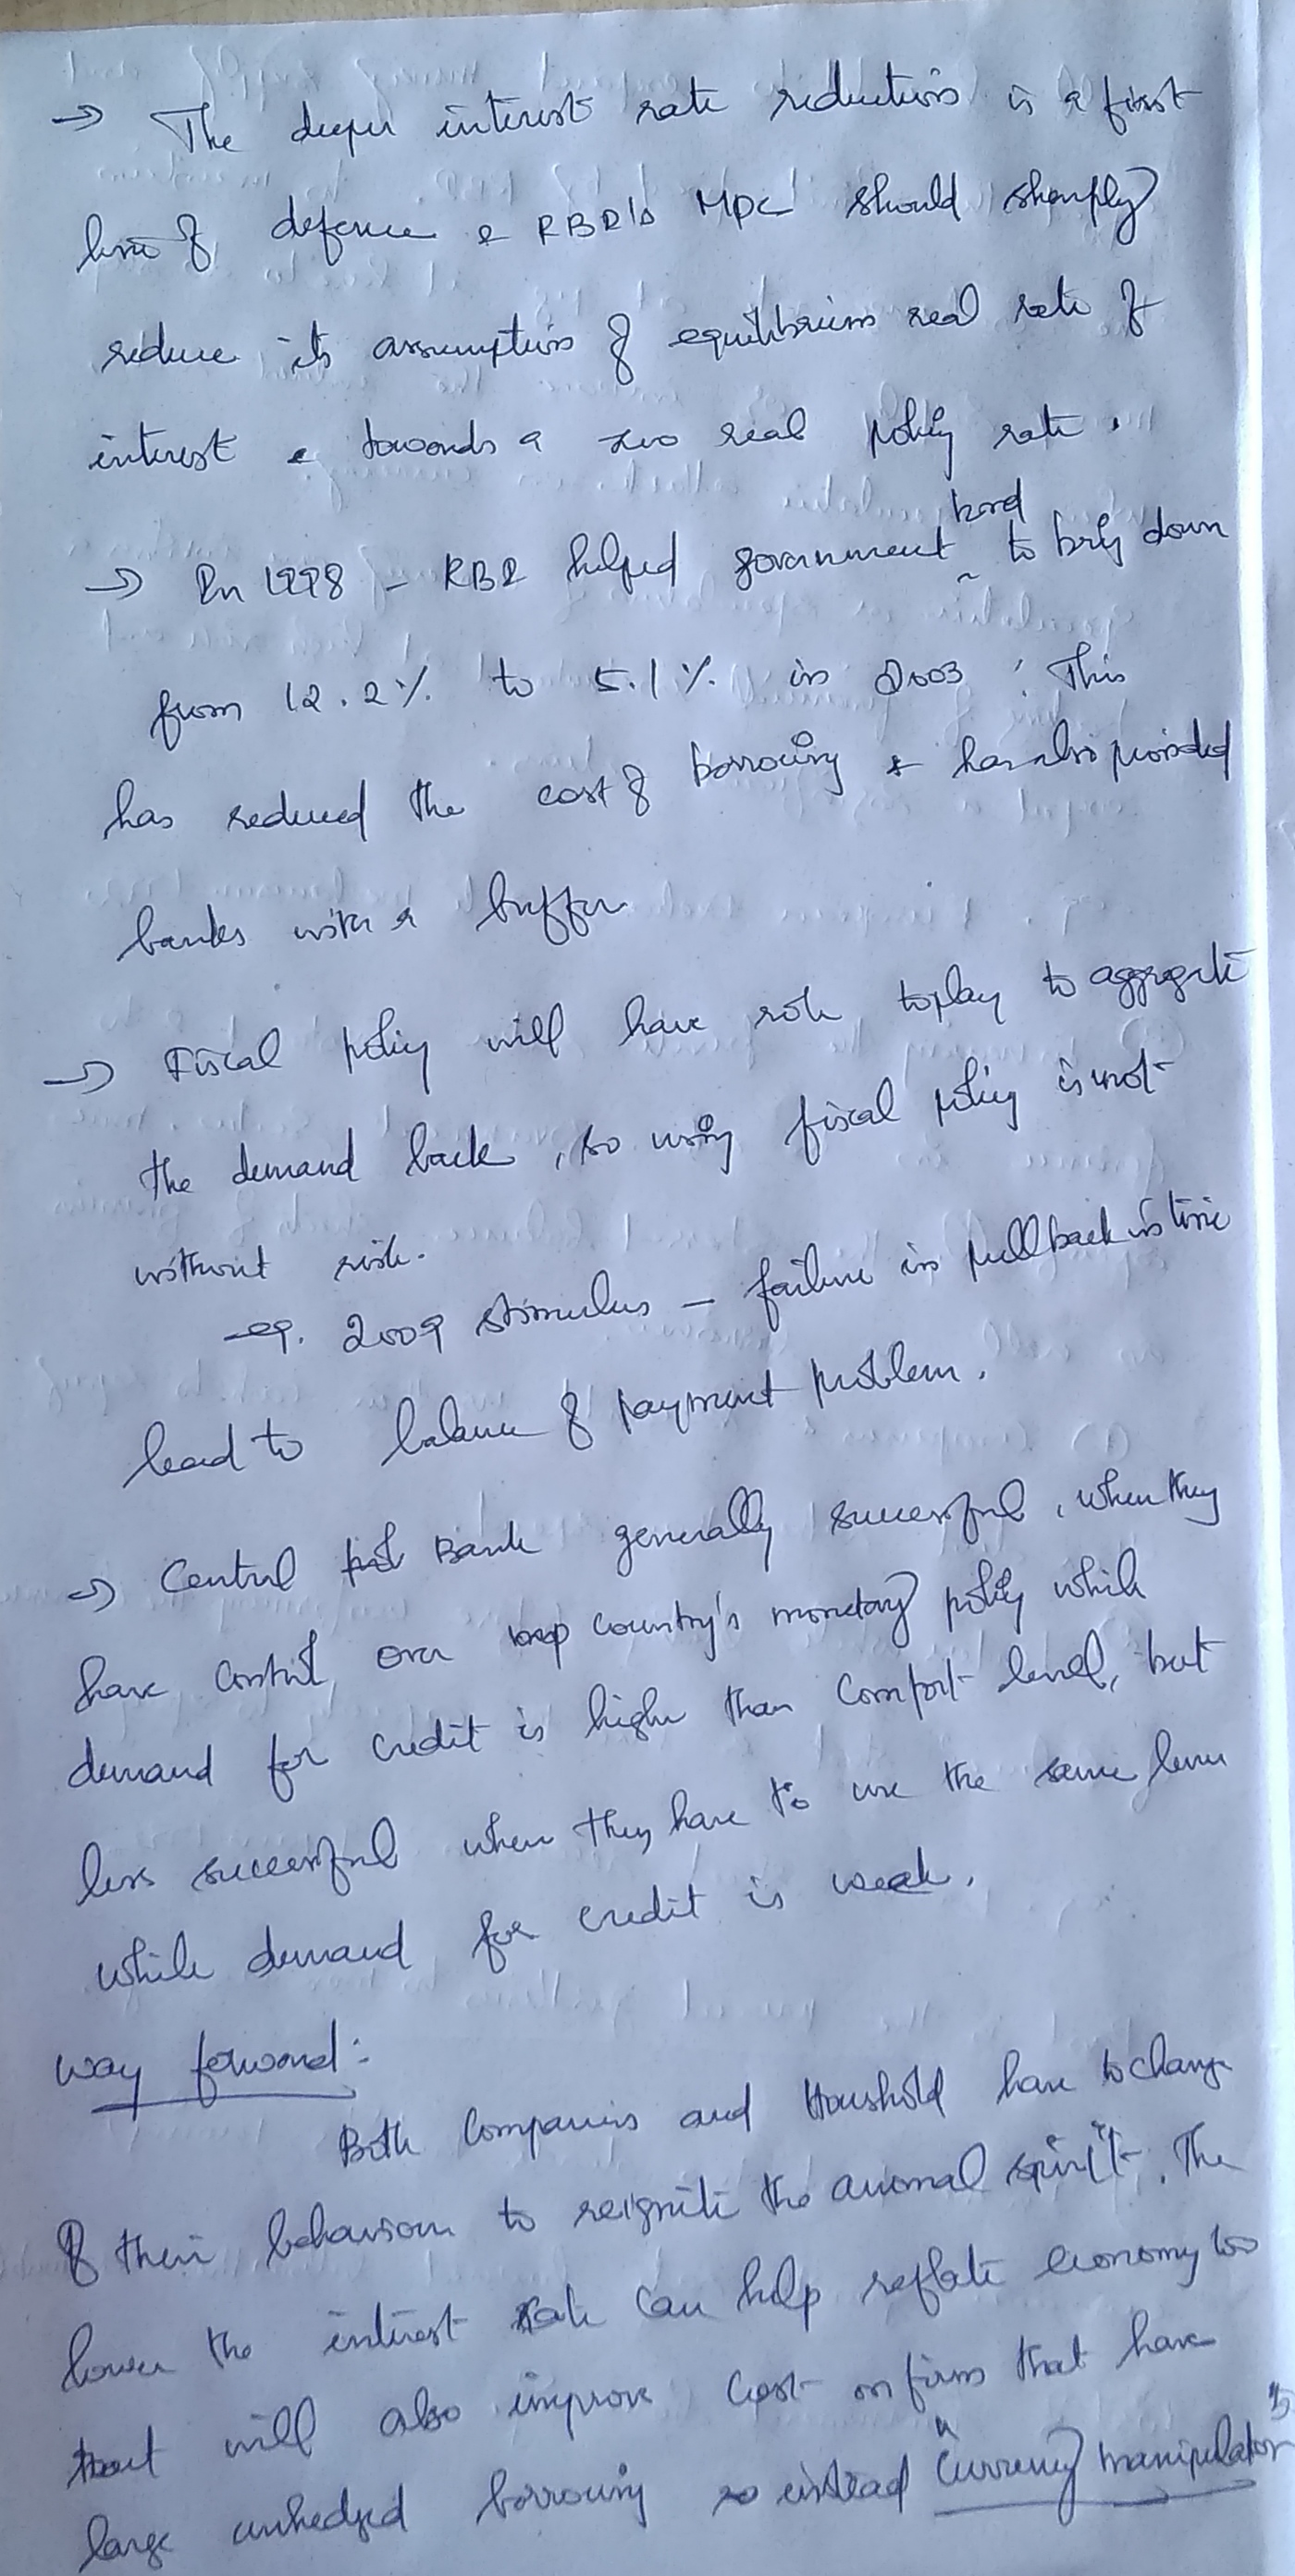 → The deeper interest rate reduction is a first
line of defence & RBI's MPC should sharply
reduce its assumption of equilibrium real rate of
interest & towards a zero real policy rate.
→ In 1998 - RBI helped government bond to bring down
from 12.2% to 5.1% in 2003. This
has reduced the cost of borrowing & has also provided
banks with a buffer
→ Fiscal policy will have role to play to aggregate
the demand back, so using fiscal policy is not
without risk.
→ eg. 2009 stimulus - failure in pull back in time
lead to balance of payment problem.
→ Central Bank generally successful, when they
have control over country's monetary policy while
demand for credit is higher than comfort level, but
less successful when they have to use the same lever
while demand for credit is weak.
Way forward:-
Both Companies and Houshold have to change
of their behaviour to reignite the animal spirit. The
lower the interest rate can help reflate economy too
that will also improve cost on firms that have
large unhedged borrowing so instead "Currency manipulator"